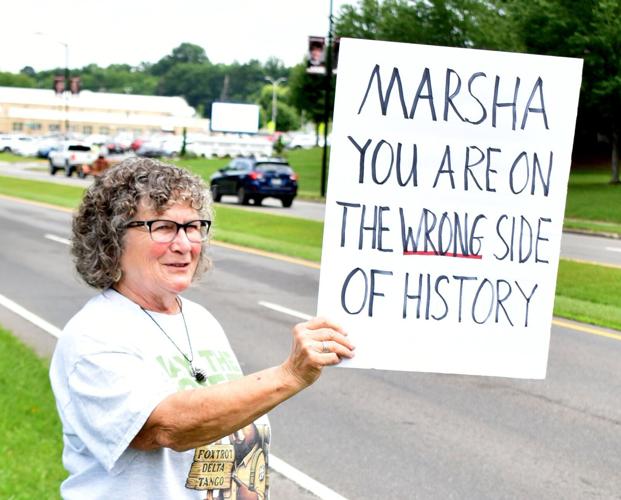 MARSHA
YOU ARE ON
THE WRONG SIDE
OF HISTORY
FOXTROT
DELTA
TANGO